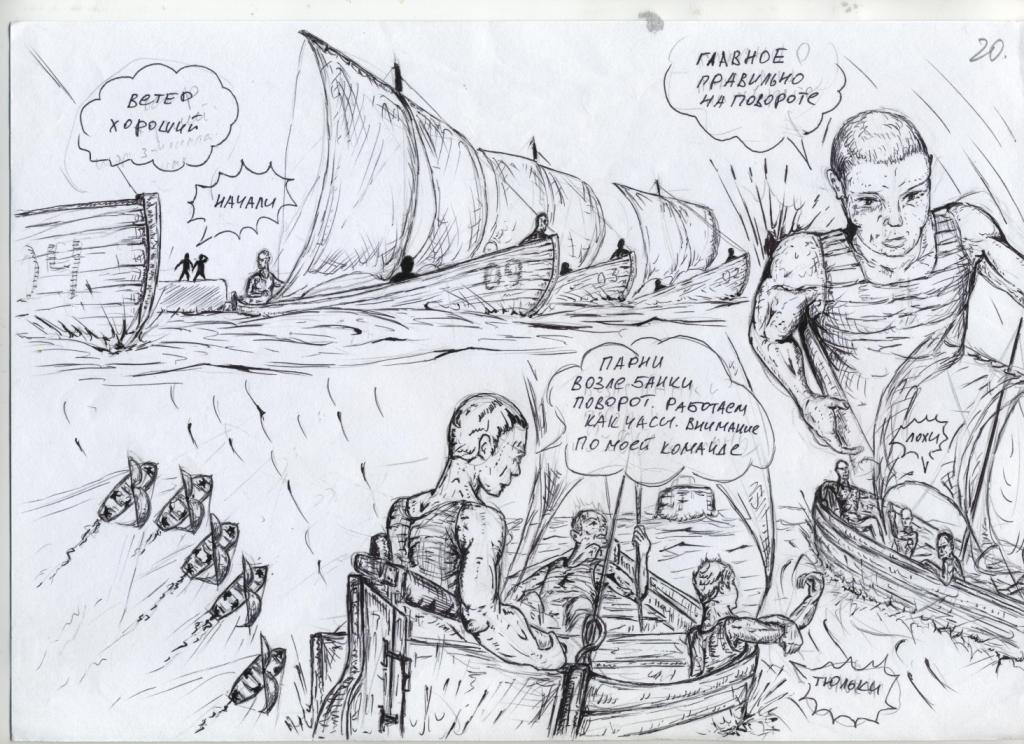 20.
ВЕТЕР
ХОРОШИЙ
НАЧАЛИ
ГЛАВНОЕ
ПРАВИЛЬНО
НА ПОВОРОТЕ
09
ПАРНИ
ВОЗЛЕ БАНКИ
ПОВОРОТ. РАБОТАЕМ
КАК ЧАСЫ. ВНИМАНИЕ
ПО МОЕЙ КОМАНДЕ
ЛОХИ
ТЮЛЬКИ